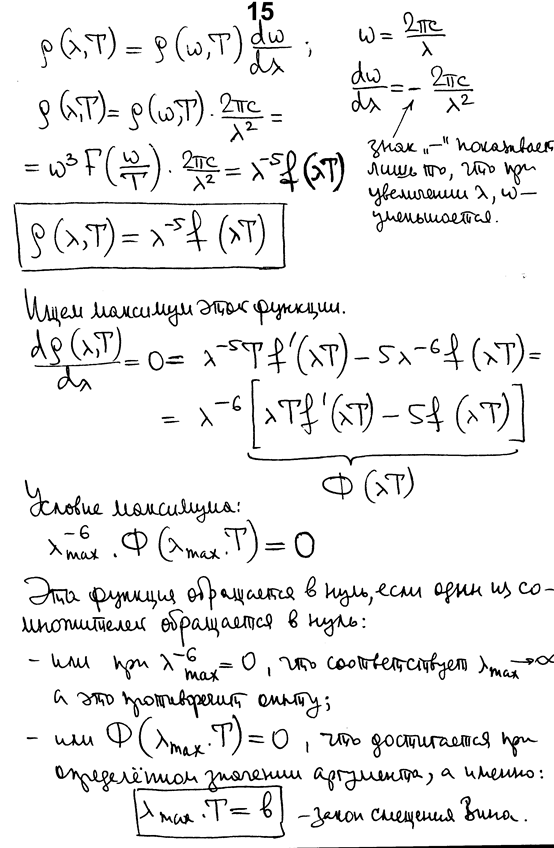 15
ρ(λ,T) = ρ(ω,T) dω/dλ ; ω = 2πc/λ
dω/dλ = − 2πc/λ²
ρ(λ,T) = ρ(ω,T) · 2πc/λ² =
= ω³ F(ω/T) · 2πc/λ² = λ⁻⁵ f(λT)
знак „−" показывает
лишь то, что при
увеличении λ, ω −
уменьшается.
ρ(λ,T) = λ⁻⁵ f(λT)
Ищем максимум этой функции.
dρ(λ,T)/dλ = 0 = λ⁻⁵ T f'(λT) − 5λ⁻⁶ f(λT) =
= λ⁻⁶ [λT f'(λT) − 5f(λT)]
Φ(λT)
Условие максимума:
λ⁻⁶max · Φ(λmax · T) = 0
Эта функция обращается в нуль, если один из со-
множителей обращается в нуль:
- или при λ⁻⁶max = 0, что соответствует λmax → ∞
а это противоречит опыту;
- или Φ(λmax · T) = 0, что достигается при
определённом значении аргумента, а именно:
λmax · T = b - закон смещения Вина.